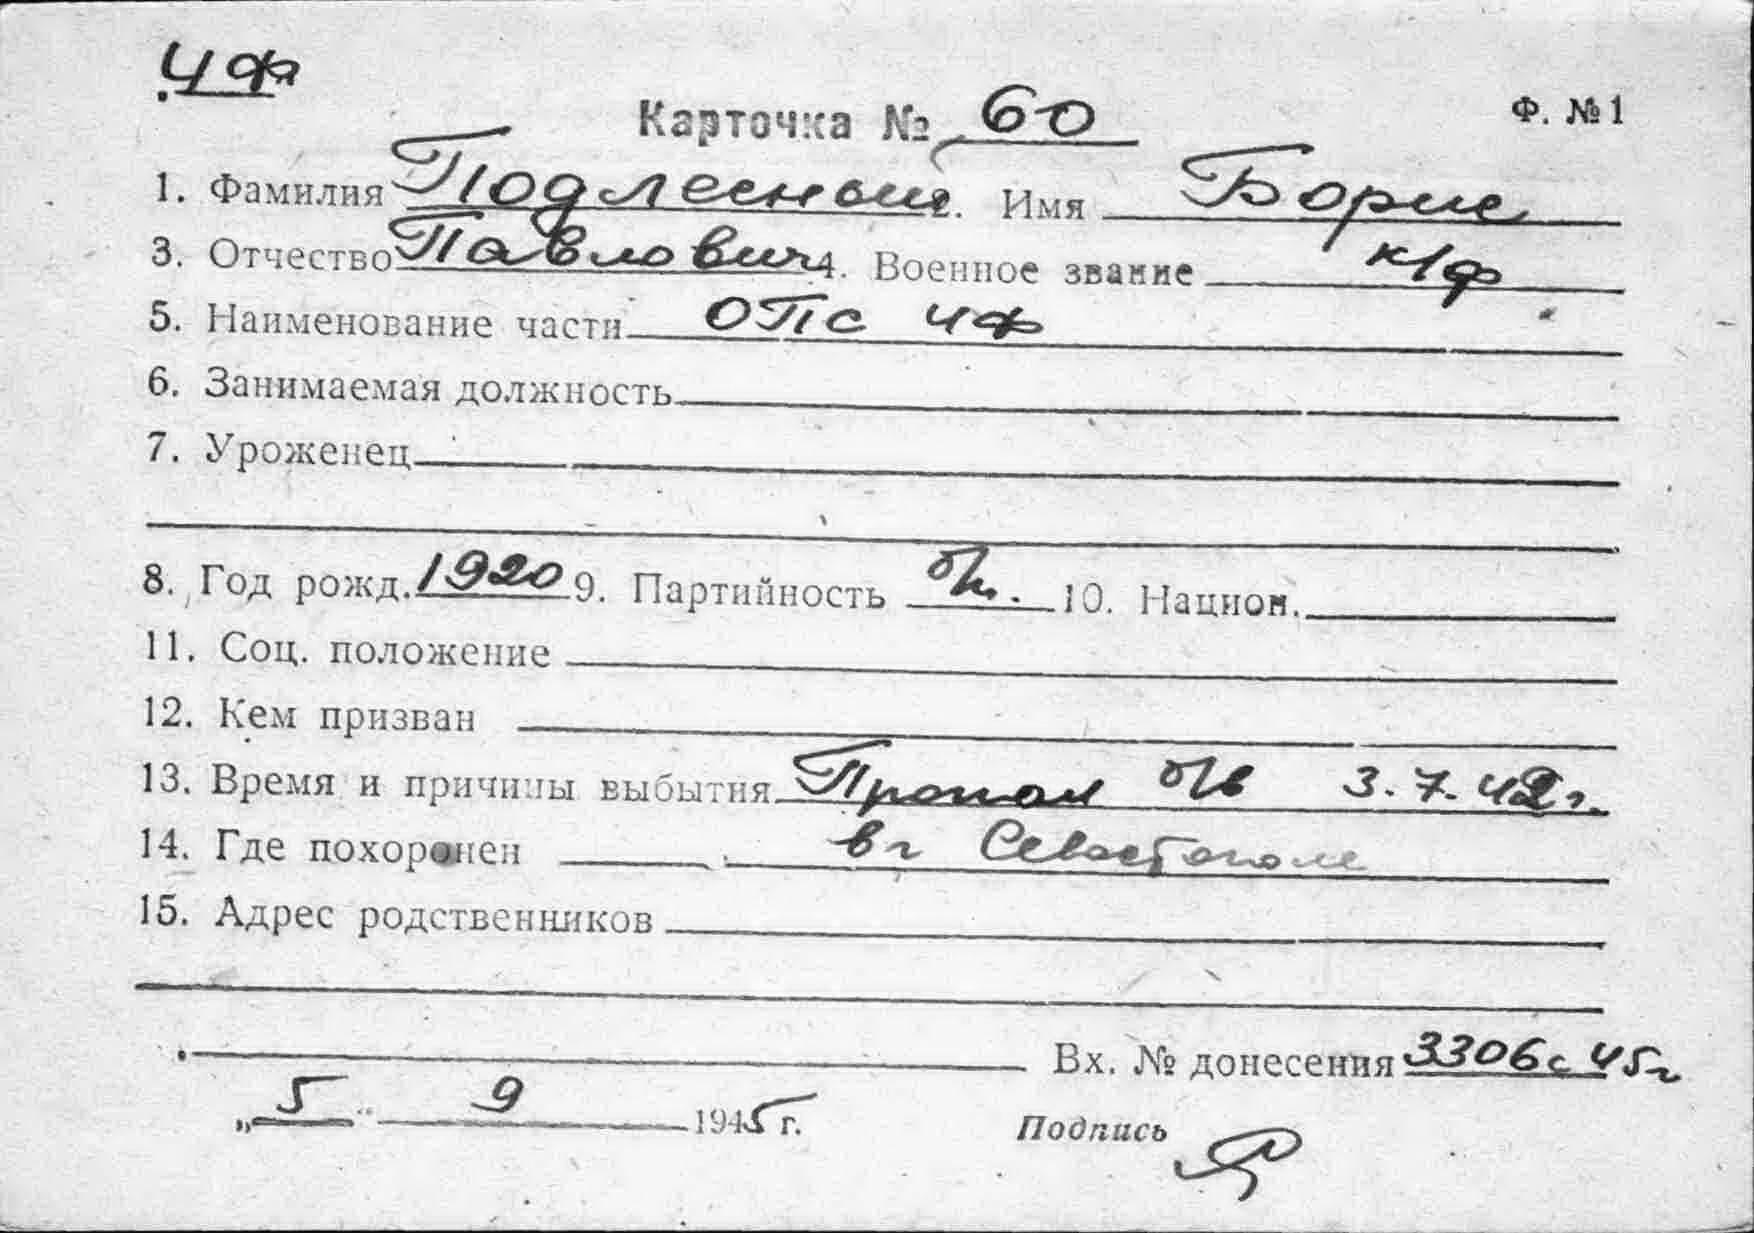 ЧФ
Карточка № 60 Ф. №1
1. Фамилия Подлесный 2. Имя Борис
3. Отчество Павлович 4. Военное звание к/ф
5. Наименование части ОПС ЧФ
6. Занимаемая должность
7. Уроженец
8. Год рожд. 1920 9. Партийность б/п. 10. Национ.
11. Соц. положение
12. Кем призван
13. Время и причины выбытия Пропал б/в 3.7.42 г.
14. Где похоронен в г Севастополе
15. Адрес родственников
Вх. № донесения 3306с 45г
„5“ 9 1945 г. Подпись